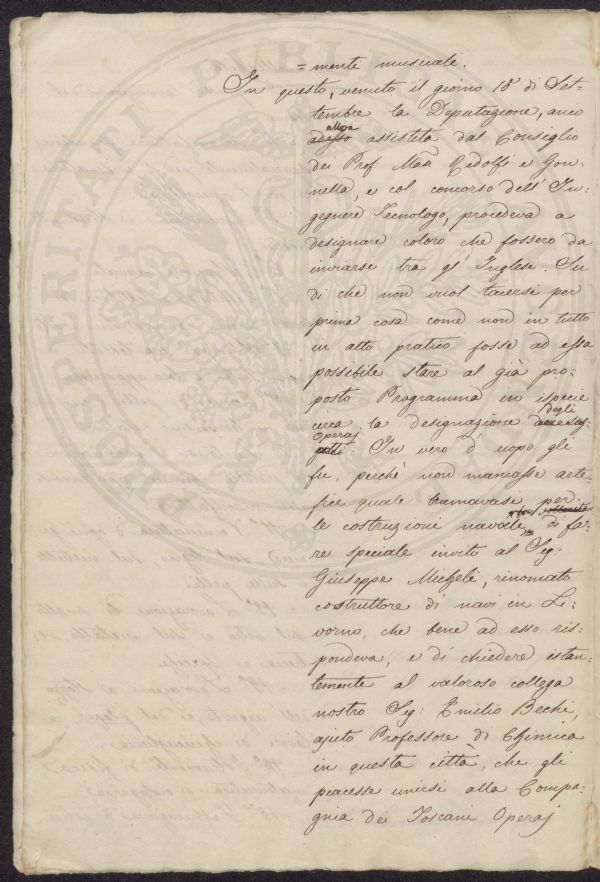 =mente musicale.
In questo, venuto il giorno 18 di Set-
tembre la Deputazione, anco
allora
adesso assistita dal Consiglio
dei Prof. Mari Ridolfi e Gon-
nella, e col concorso dell' In-
gegnere Tecnologo, procedeva a
designare coloro che fossero da
inviarsi tra gl' Inglesi. Su
di che non vuol tacersi per
prima cosa come non in tutto
in atto pratico fosse ad essa
possibile stare al già pro-
posto Programma in ispecie
degli
circa la designazione
Operaj
In vero d' uopo gli
fu, perchè non mancasse arte-
fice quale bramavasi per
le costruzioni navali, di fa-
re speciale invito al Sig:
Giuseppe Micheli, rinomato
costruttore di navi in Li-
vorno, che bene ad esso ris-
pondeva, e di chiedere istan-
temente al valoroso collega
nostro Sig: Emilio Bechi,
ajuto Professore di Chimica
in questa città, che gli
piacesse unirsi alla Compa-
gnia dei Toscani Operaj
PUBLI
PROSPERITATI